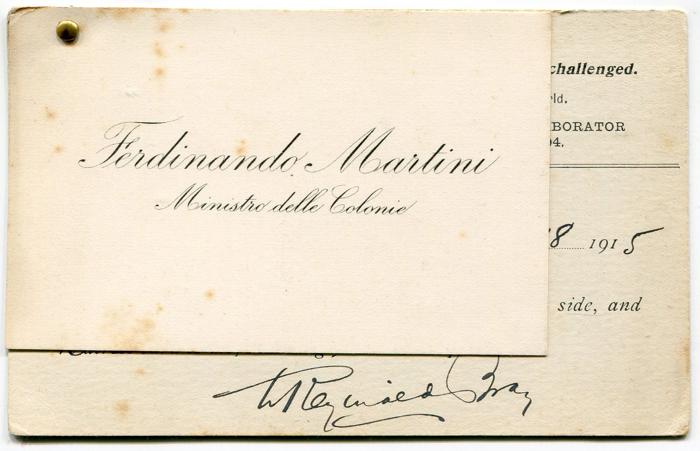 Ferdinando Martini
Ministro delle Colonie
challenged.
BORATOR
8 1915
side, and
W Reginald Bray